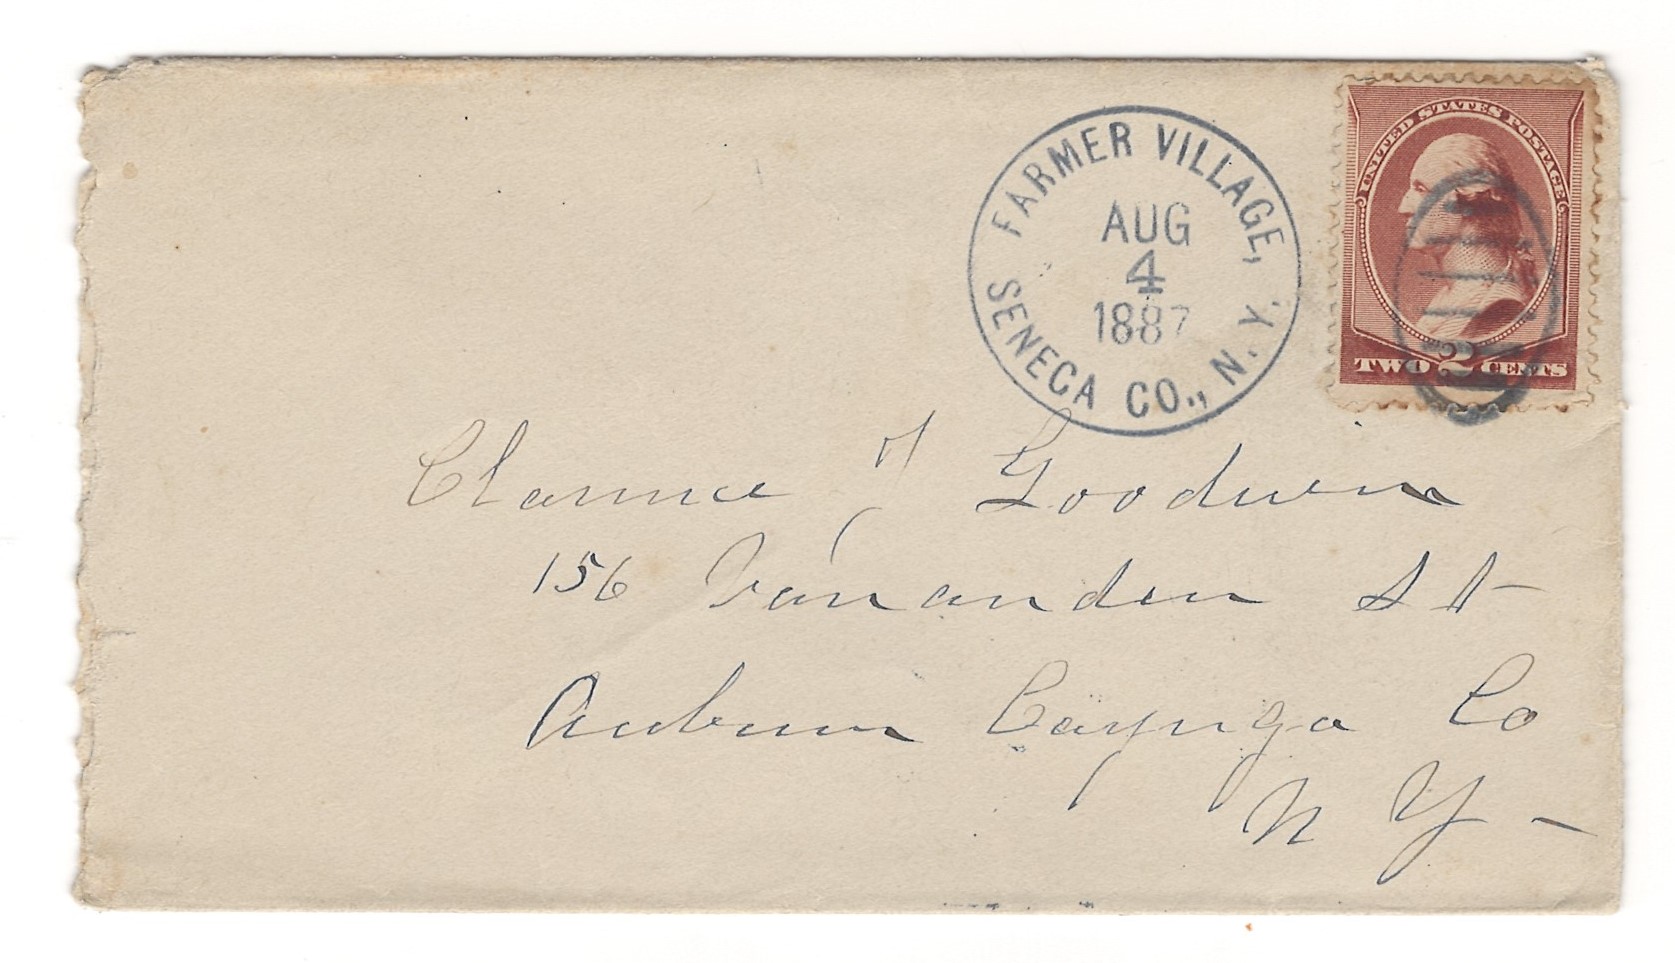 FARMER VILLAGE,
SENECA CO., N.Y.
AUG
4
1887
UNITED STATES POSTAGE
TWO 2 CENTS
Clarence J Goodwin
156 Vananden St
Auburn Cayuga Co
N Y -